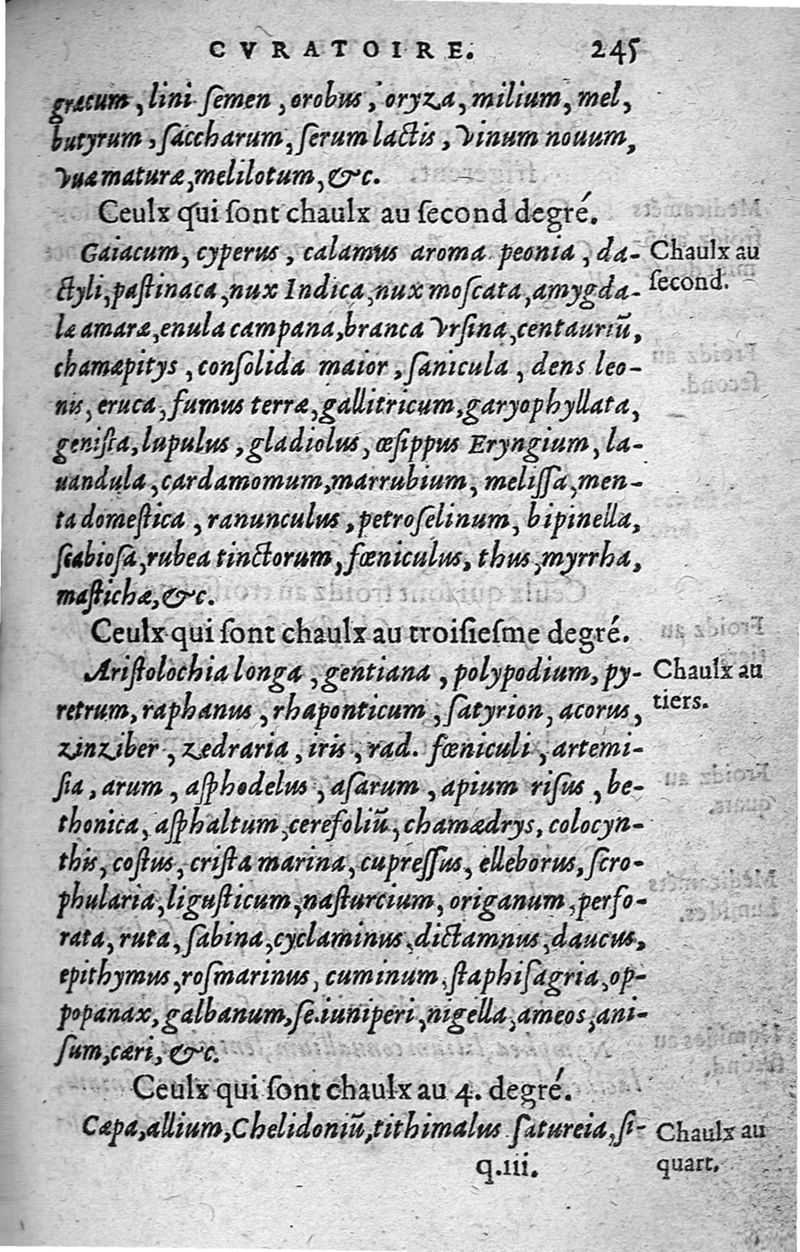 CVRATOIRE. 245
græcum, lini semen, orobus, oryza, milium, mel,
butyrum, saccharum, serum lactis, Vinum nouum,
Vuæ maturæ, melilotum, &c.
Ceulx qui sont chaulx au second degré.
Gaiacum, cyperus, calamus aroma peonia, da-
ctyli, pastinaca, nux Indica, nux moscata, amygda-
læ amaræ, enula campana, branca Vrsina, centauriũ,
chamæpitys, consolida maior, sanicula, dens leo-
nis, eruca, fumus terræ, gallitricum, garyophyllata,
genista, lupulus, gladiolus, œsippus Eryngium, la-
uandula, cardamomum, marrubium, melissa, men-
ta domestica, ranunculus, petroselinum, bipinella,
scabiosa, rubea tinctorum, fœniculus, thus, myrrha,
mastichæ, &c.
Chaulx au
second.
Ceulx qui sont chaulx au troisiesme degré.
Aristolochia longa, gentiana, polypodium, py-
retrum, raphanus, rhaponticum, satyrion, acorus,
zinziber, zedraria, iris, rad. fœniculi, artemi-
sia, arum, asphodelus, asarum, apium risus, be-
thonica, asphaltum, cerefoliũ, chamædrys, colocyn-
this, costus, crista marina, cupressus, elleborus, scro-
phularia, ligusticum, nasturcium, origanum, perfo-
rata, ruta, sabina, cyclaminus, dictamnus, daucus,
epithymus, rosmarinus, cuminum, staphisagria, op-
popanax, galbanum, se. iuniperi, nigella, ameos, ani-
sum, cæri, &c.
Chaulx au
tiers.
Ceulx qui sont chaulx au 4. degré.
Cæpa, allium, Chelidoniũ, tithimalus satureia, si-
Chaulx au
quart.
q.iii.